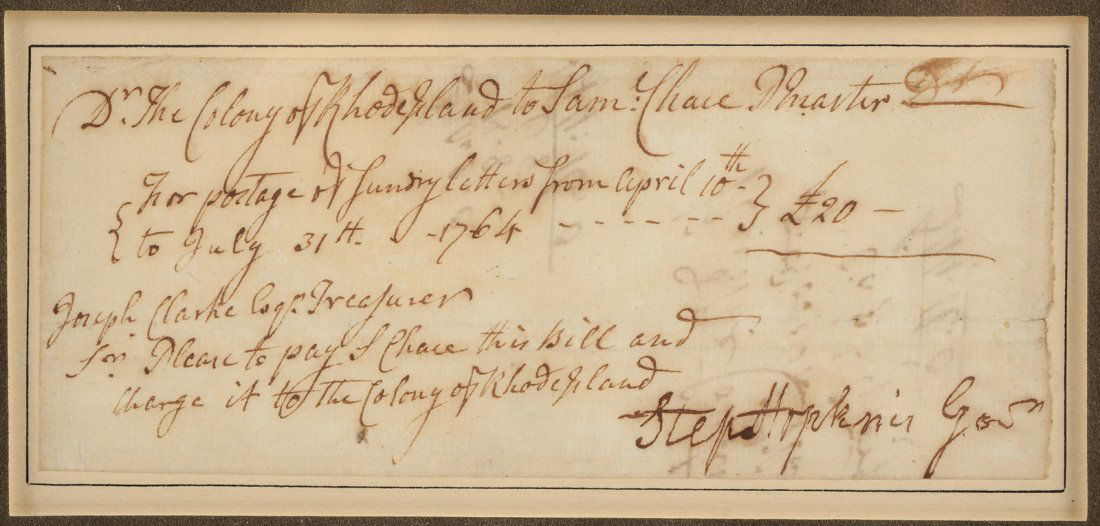 Dr. The Colony of Rhode Island to Sam: Chace P Master Dr
For postage of Sundry letters from April 10th - } £20 -
{ to July 31th - - 1764 - - - - - - -
Joseph Clarke Esqr. Treasurer
Sr. Please to pay S Chace this Bill and
Charge it to the Colony of Rhode Island
Step Hopkins Govr